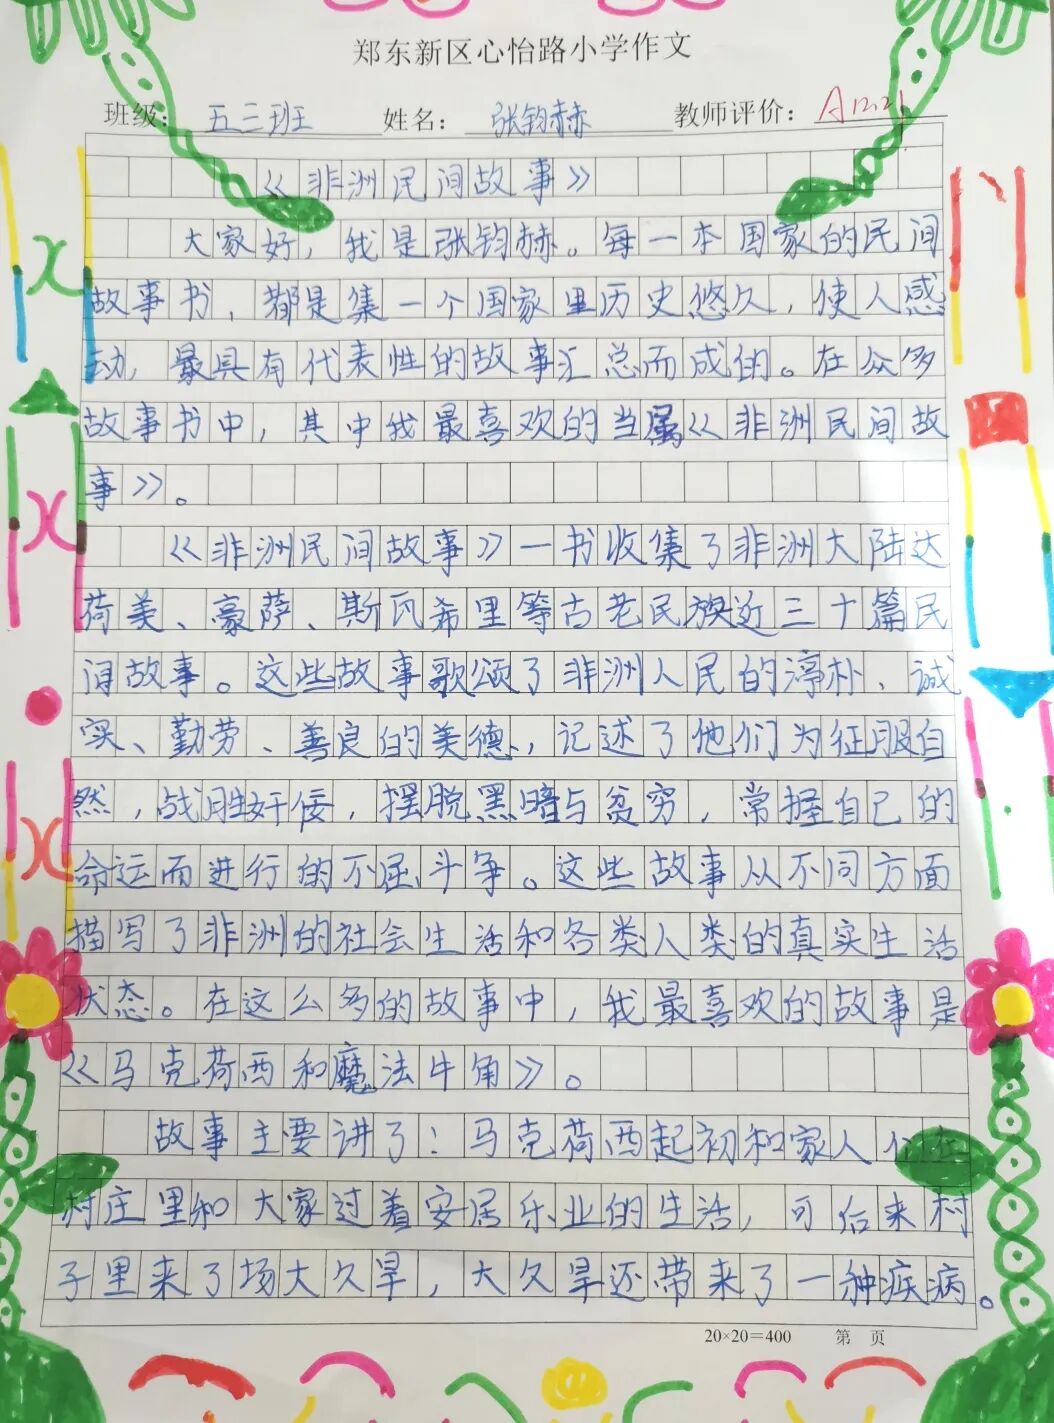 郑东新区心怡路小学作文
班级：五三班 姓名：张钧赫 教师评价：A 12.21
《非洲民间故事》
大家好，我是张钧赫。每一本国家的民间
故事书，都是集一个国家里历史悠久，使人感
动，最具有代表性的故事汇总而成的。在众多
故事书中，其中我最喜欢的当属《非洲民间故
事》。
《非洲民间故事》一书收集了非洲大陆达
荷美、豪萨、斯瓦希里等古老民族近三十篇民
间故事。这些故事歌颂了非洲人民的淳朴、诚
实、勤劳、善良的美德，记述了他们为征服自
然，战胜奸佞，摆脱黑暗与贫穷，常握自己的
命运而进行的不屈斗争。这些故事从不同方面
描写了非洲的社会生活和各类人类的真实生活
状态。在这么多的故事中，我最喜欢的故事是
《马克荷西和魔法牛角》。
故事主要讲了：马克荷西起初和家人们在
村庄里和大家过着安居乐业的生活，可后来村
子里来了场大久旱，大久旱还带来了一种疾病。
20×20=400 第 页